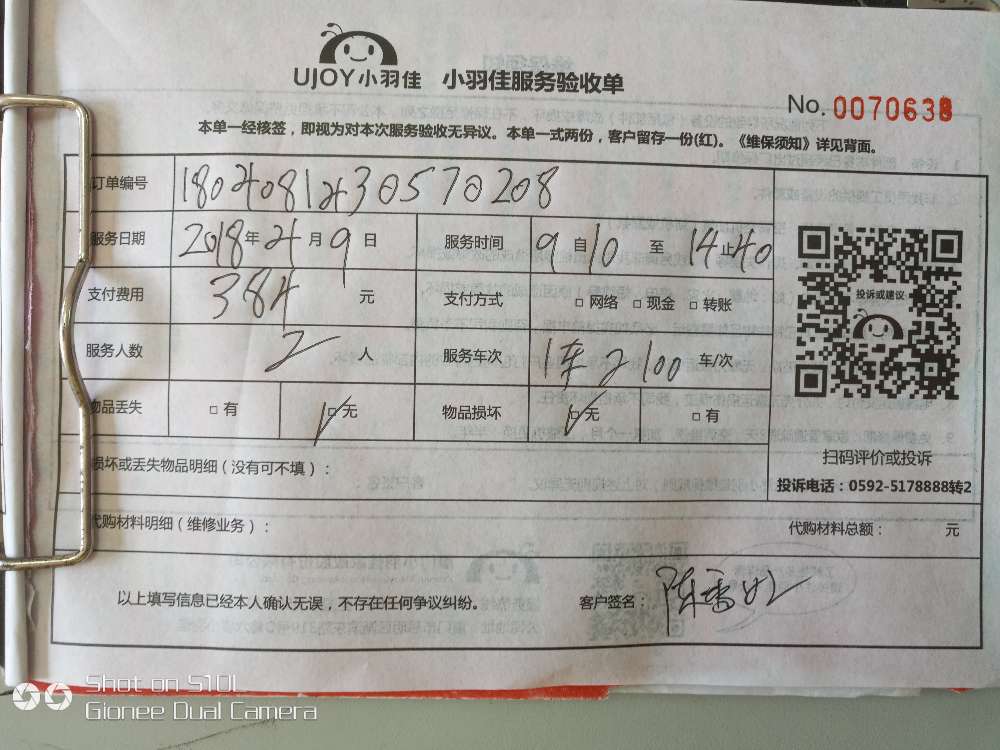 UJOY小羽佳 小羽佳服务验收单
No. 0070638
本单一经核签，即视为对本次服务验收无异议。本单一式两份，客户留存一份(红)。《维保须知》详见背面。
订单编号 18040812430570208
服务日期 2018年4月9日 服务时间 9自10至14止40
支付费用 384元 支付方式 □网络 □现金 □转账
投诉或建议
服务人数 2人 服务车次 1车2100车/次
物品丢失 □有 □无 物品损坏 □无 □有
扫码评价或投诉
损坏或丢失物品明细（没有可不填）：
投诉电话：0592-5178888转2
代购材料明细（维修业务）： 代购材料总额： 元
以上填写信息已经本人确认无误，不存在任何争议纠纷。 客户签名：
Shot on S10L
Gionee Dual Camera